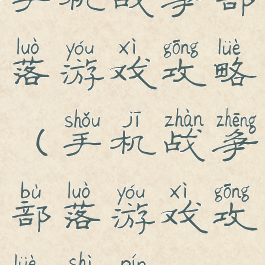 手机战争部
luò yóu xì gōng lüè
落游戏攻略
shǒu jī zhàn zhēng
（手机战争
bù luò yóu xì gōng
部落游戏攻
lüè shì pín